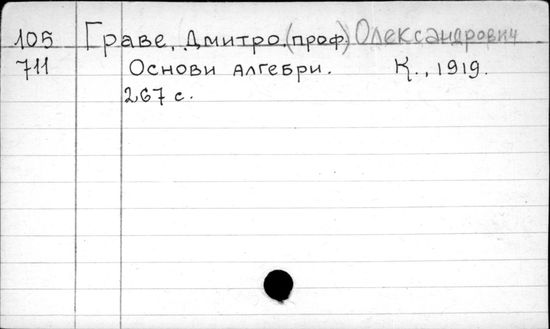 105 Граве, Дмитро (проф) Олександрович
711 Основи алгебри. К., 1919.
267 с.